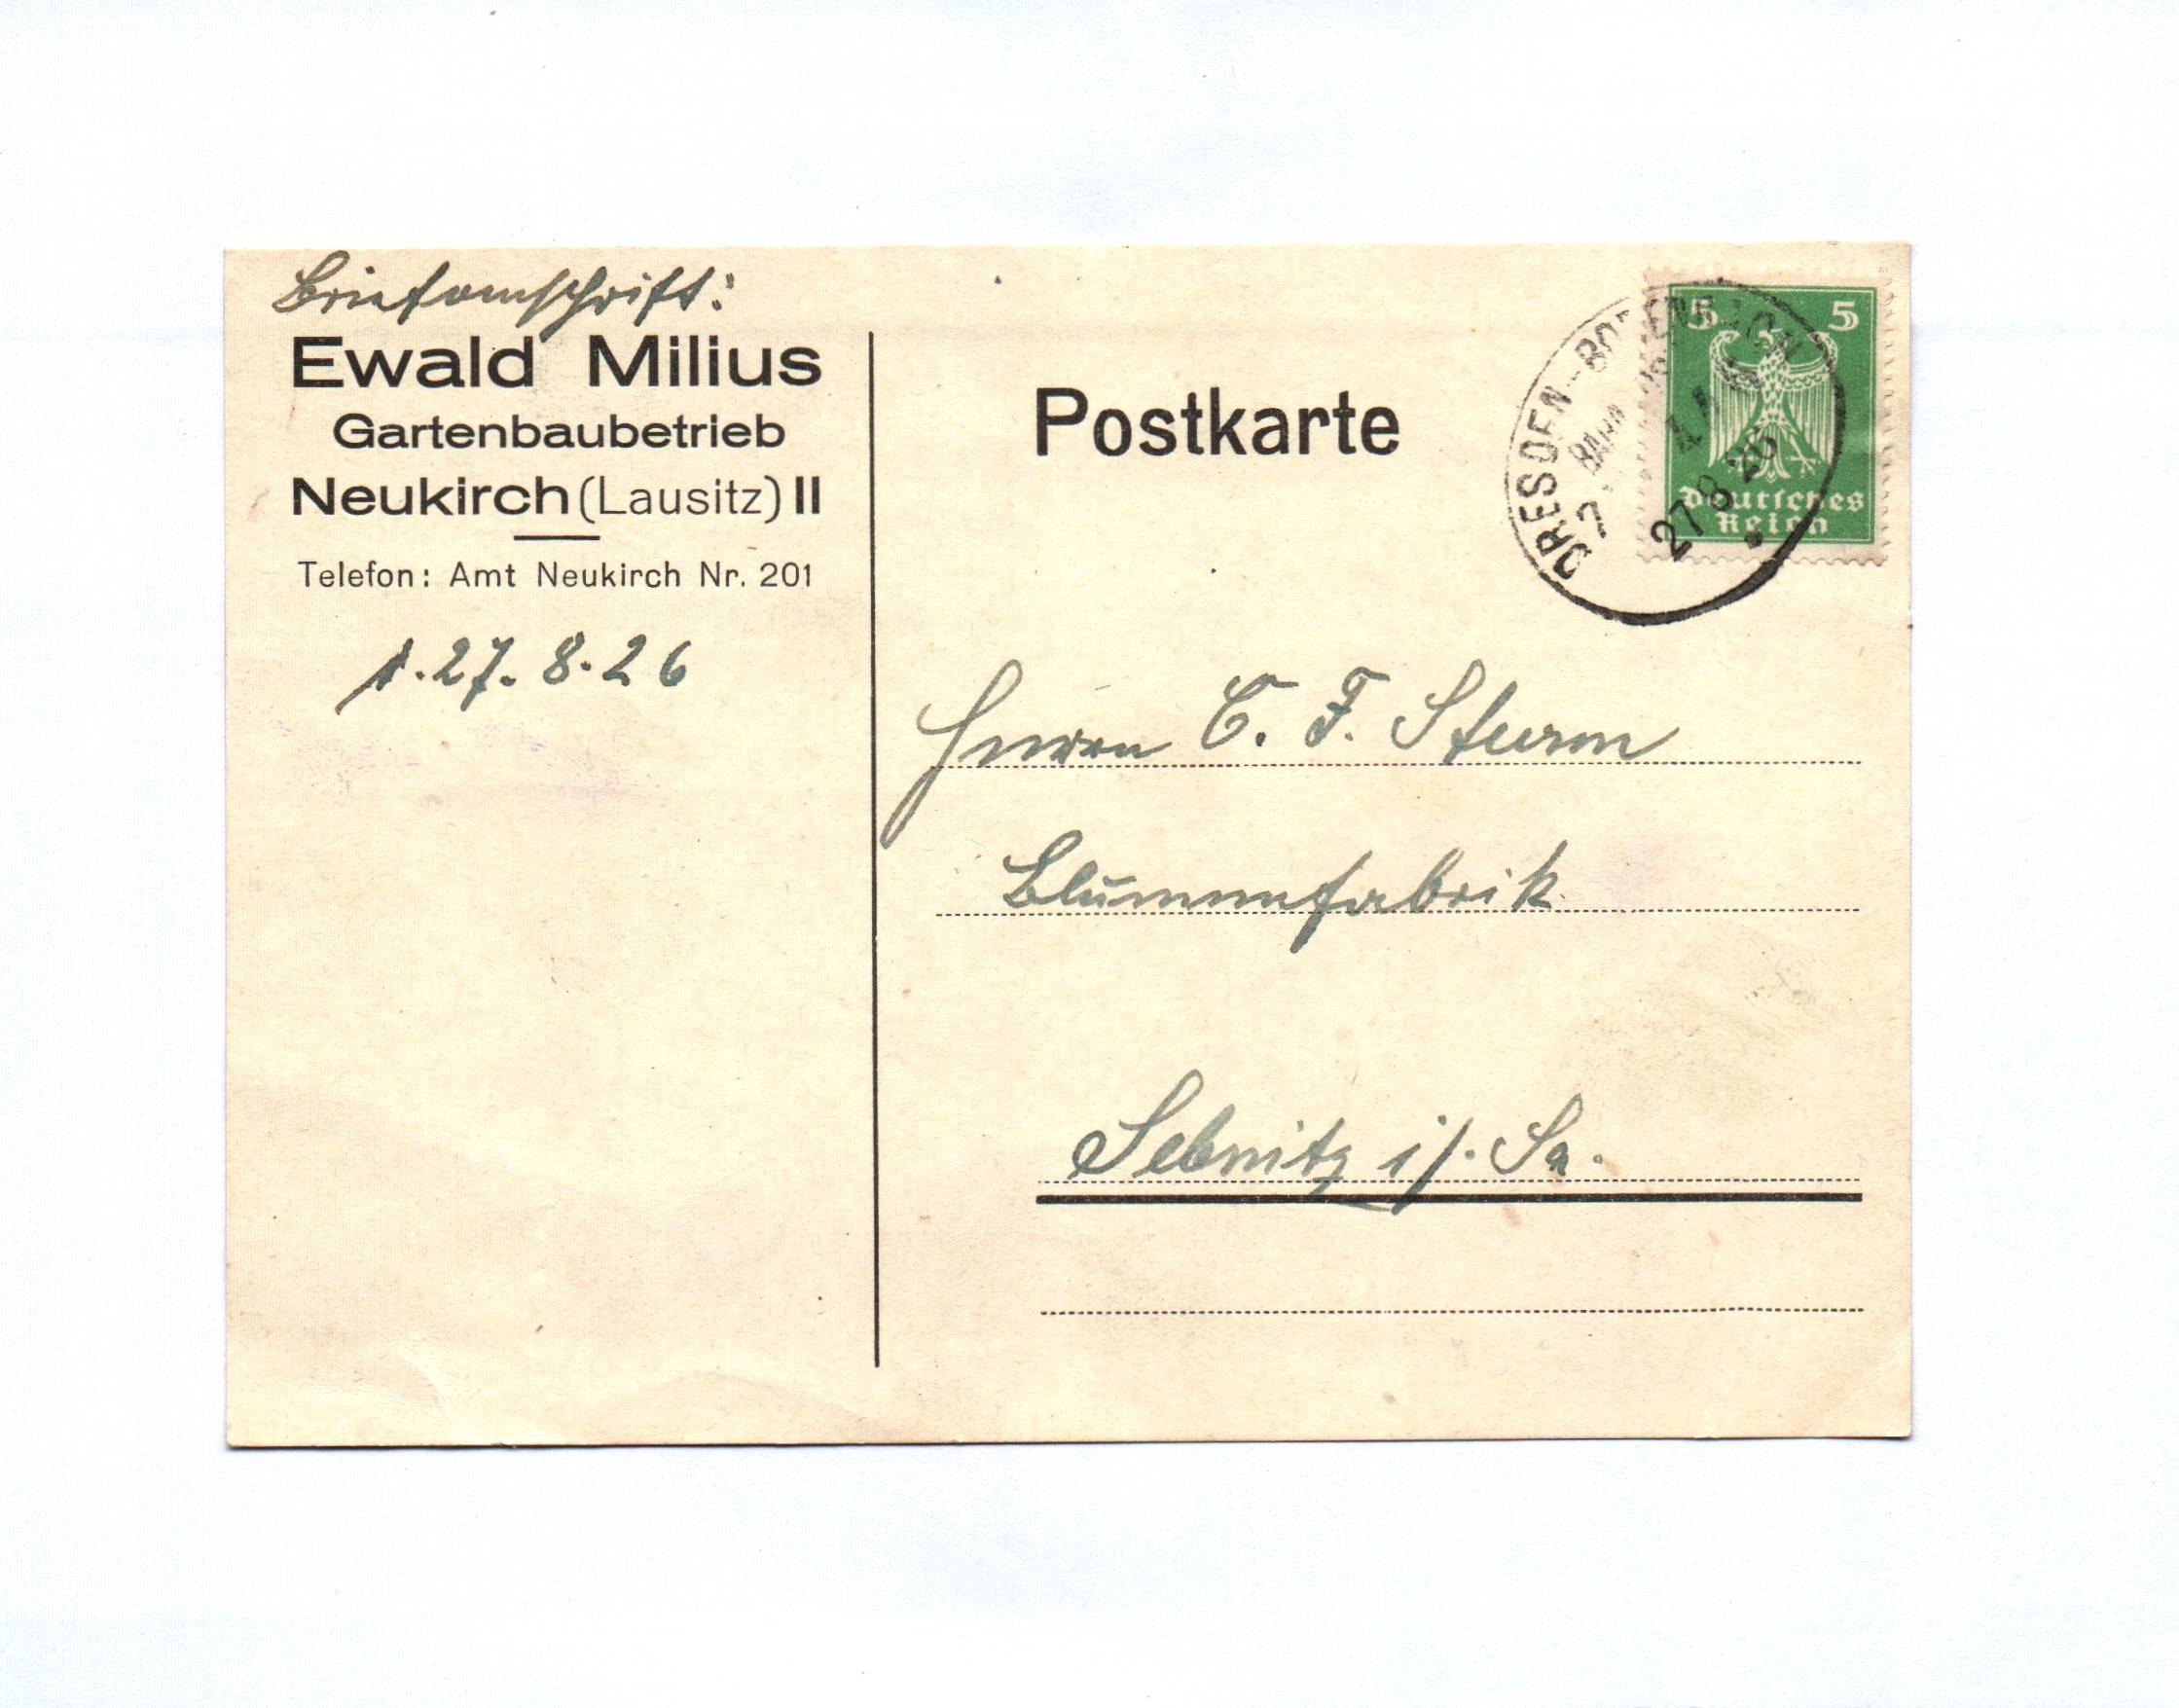 Briefanschrift:
Ewald Milius
Gartenbaubetrieb
Neukirch (Lausitz) II
Telefon: Amt Neukirch Nr. 201
27.8.26
Postkarte
5 5
Deutsches
Reich
DRESDEN-BODENBACH
27 8 26
Herrn C. F. Sturm
Blumenfabrik
Sebnitz i/. Sa.